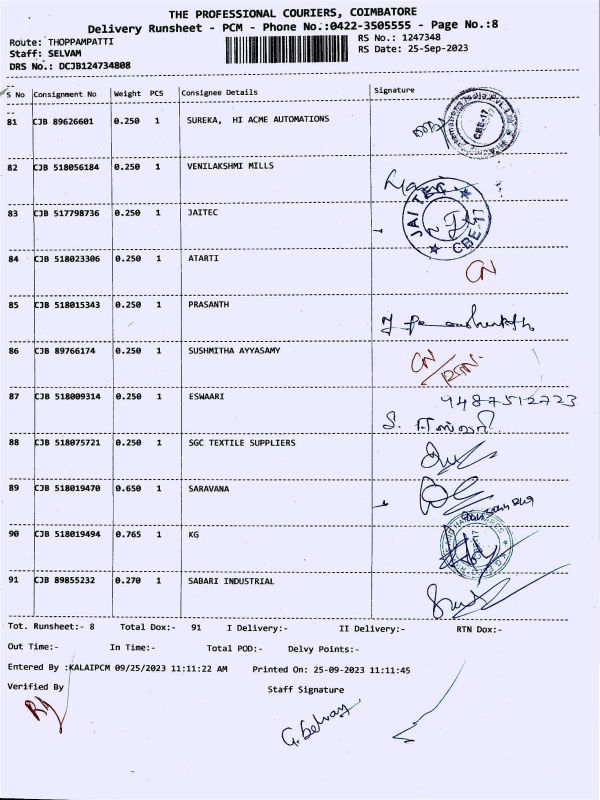 THE PROFESSIONAL COURIERS, COIMBATORE
Delivery Runsheet - PCM - Phone No.:0422-3505555 - Page No.:8
Route: THOPPAMPATTI RS No.: 1247348
Staff: SELVAM RS Date: 25-Sep-2023
DRS No.: DCJB124734808
S No Consignment No Weight PCS Consignee Details Signature
81 CJB 89626601 0.250 1 SUREKA, HI ACME AUTOMATIONS
CBE-17
82 CJB 518056184 0.250 1 VENILAKSHMI MILLS
83 CJB 517798736 0.250 1 JAITEC
JAI TEC CBE-17
84 CJB 518023306 0.250 1 ATARTI
CN
85 CJB 518015343 0.250 1 PRASANTH
86 CJB 89766174 0.250 1 SUSHMITHA AYYASAMY
CN/RTN
87 CJB 518009314 0.250 1 ESWAARI 9487512723
88 CJB 518075721 0.250 1 SGC TEXTILE SUPPLIERS
89 CJB 518019470 0.650 1 SARAVANA
90 CJB 518019494 0.765 1 KG
91 CJB 89855232 0.270 1 SABARI INDUSTRIAL
Tot. Runsheet:- 8 Total Dox:- 91 I Delivery:- II Delivery:- RTN Dox:-
Out Time:- In Time:- Total POD:- Delvy Points:-
Entered By :KALAIPCM 09/25/2023 11:11:22 AM Printed On: 25-09-2023 11:11:45
Verified By Staff Signature
G. Selvam